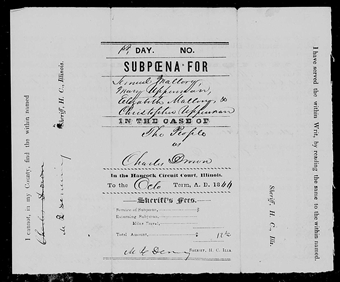 1st DAY. NO.
SUBPŒNA FOR
Samuel Mallory,
Mary Uppinson,
Elizabeth Mallory, &
Christopher Uppinson
IN THE CASE OF
The People
vs
Charles Brown
In the Hancock Circuit Court, Illinois.
To the Octo Term, A. D. 1864
Sheriff's Fees.
Service of Subpœna, $
Returning Subpœna,
Miles Travel,
Total Amount, $
SHERIFF, H. C. ILLS.
I cannot, in my County, find the within named
Sheriff, H. C., Illinois.
I have served the within Writ, by reading the same to the within named
Sheriff, H. C., Ills.